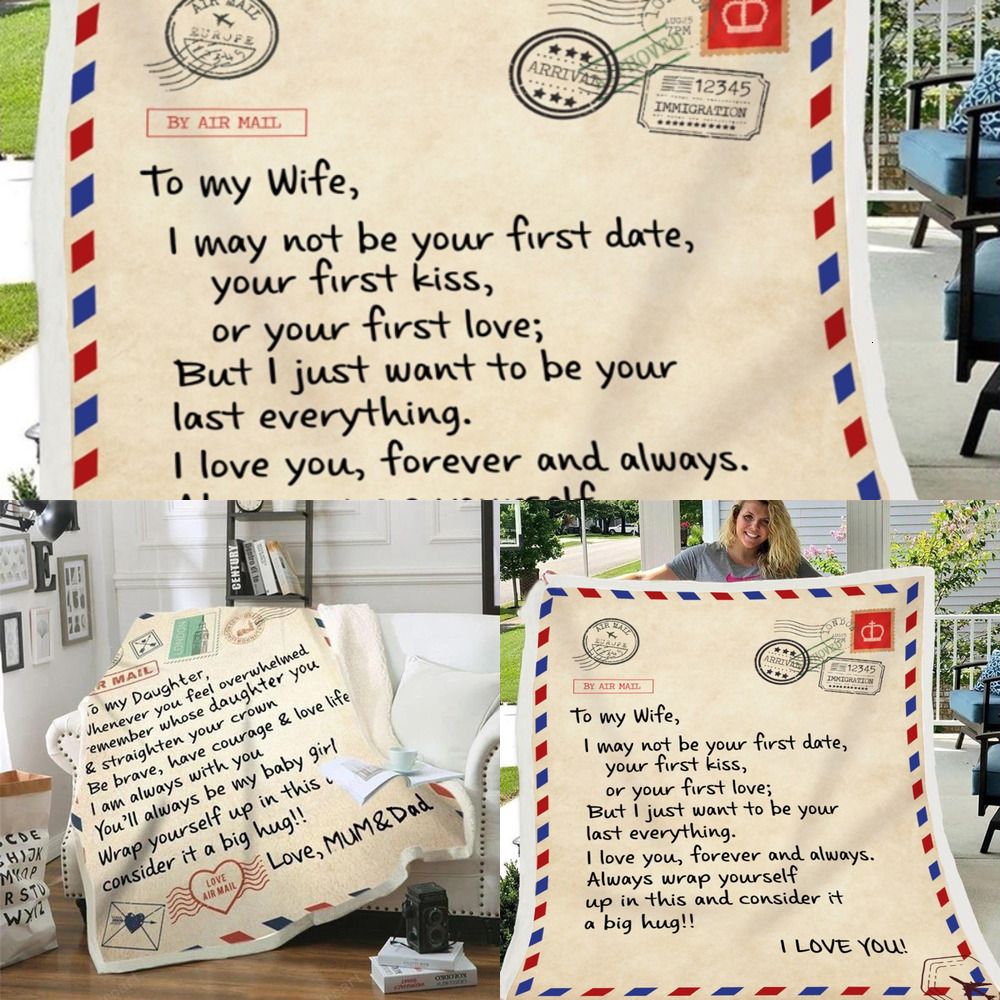 AIR MAIL
EUROPE
12345
ARRIVAL
AUG 25
7PM
12345
IMMIGRATION
BY AIR MAIL
To my Wife,
I may not be your first date,
your first kiss,
or your first love;
But I just want to be your
last everything.
I love you, forever and always.
CENTURY
E
LONDON
R MAIL
To my Daughter,
Whenever you feel overwhelmed
remember whose daughter you
& straighten your crown
Be brave, have courage & love life
I am always with you
You'll always be my baby girl
Wrap yourself up in this
consider it a big hug!!
Love, MUM&Dad
LOVE
AIR MAIL
KOLODKO
AIR MAIL
EUROPE
ARRIVAL
12345
IMMIGRATION
BY AIR MAIL
To my Wife,
I may not be your first date,
your first kiss,
or your first love;
But I just want to be your
last everything.
I love you, forever and always.
Always wrap yourself
up in this and consider it
a big hug!!
I LOVE YOU!